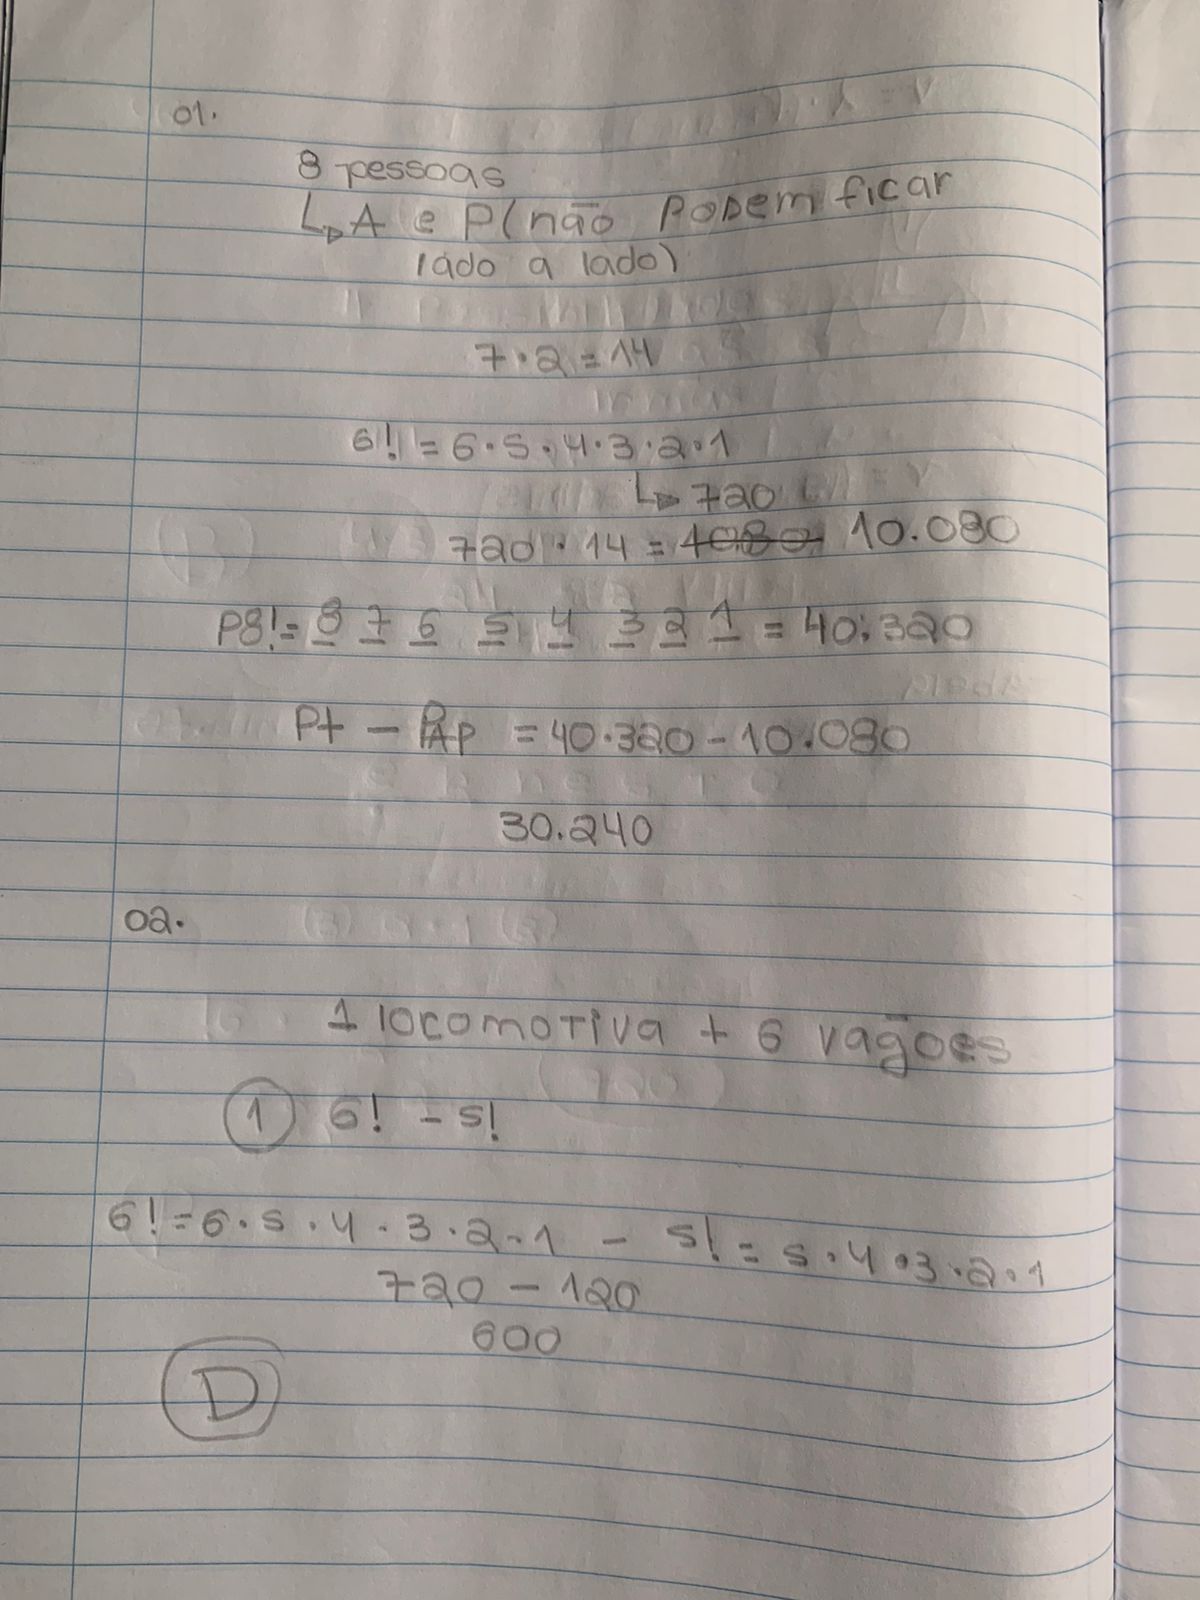 01.
8 pessoas
↳ A e P (não PODEM ficar
lado a lado)
7 · 2 = 14
6! = 6 · 5 · 4 · 3 · 2 · 1
↳ 720
720 · 14 = 1080 10.080
P8! = 8 7 6 5 4 3 2 1 = 40.320
Pt - PAP = 40.320 - 10.080
30.240
02.
1 locomotiva + 6 vagões
1 6! - 5!
6! = 6 · 5 · 4 · 3 · 2 · 1 - 5! = 5 · 4 · 3 · 2 · 1
720 - 120
600
D